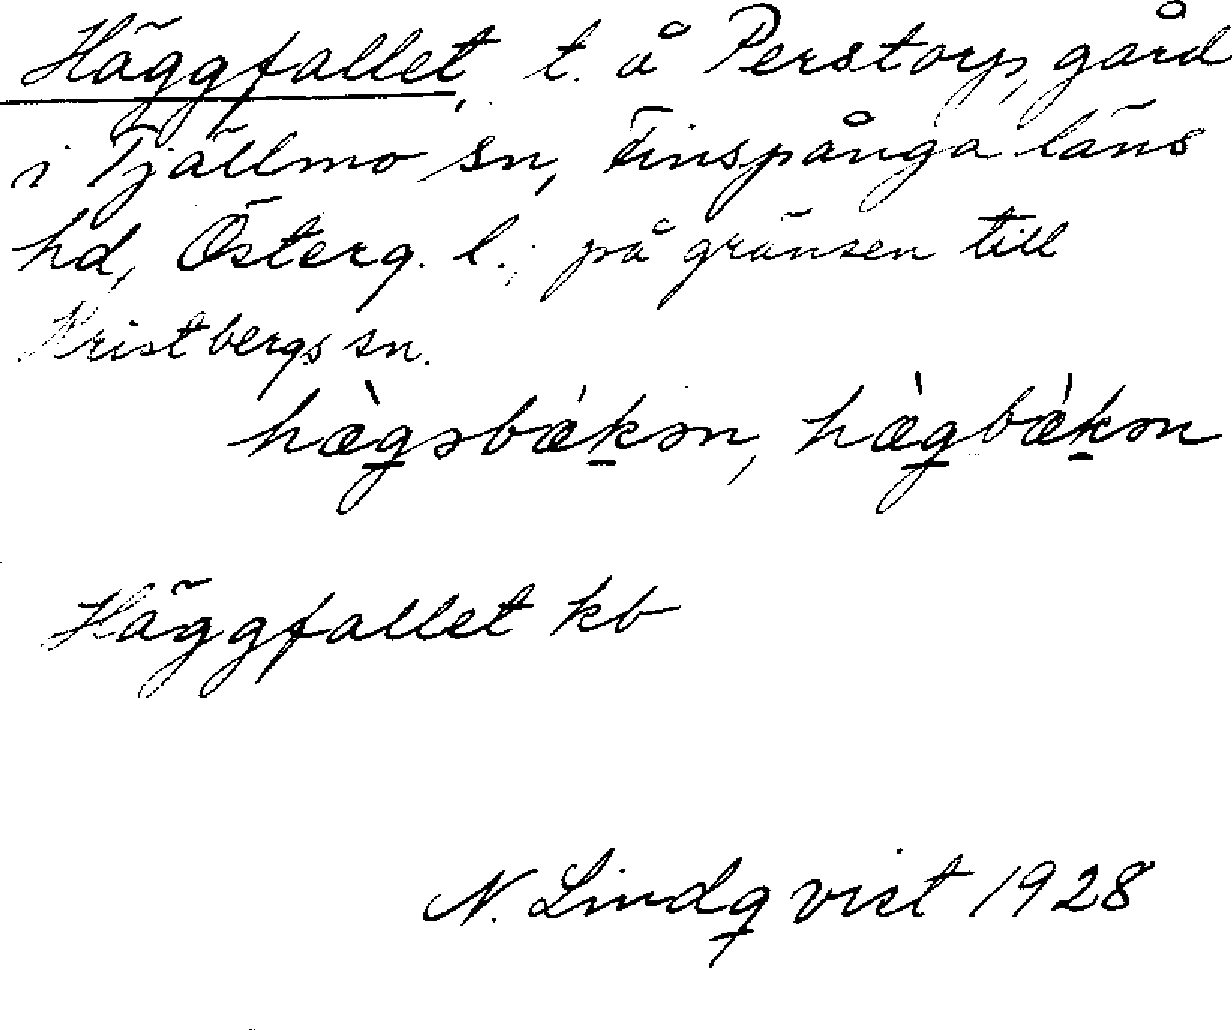 Häggfallet, t. å Perstorp, gård
i Tjällmo sn, Finspånga läns
hd, Österg. l.; på gränsen till
Kristbergs sn.
hæ̀gsbækən, hæ̀gbækən
Häggfallet kb
N. Lindqvist 1928